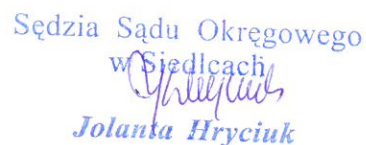 Sędzia Sądu Okręgowego
w Siedlcach
Jolanta Hryciuk